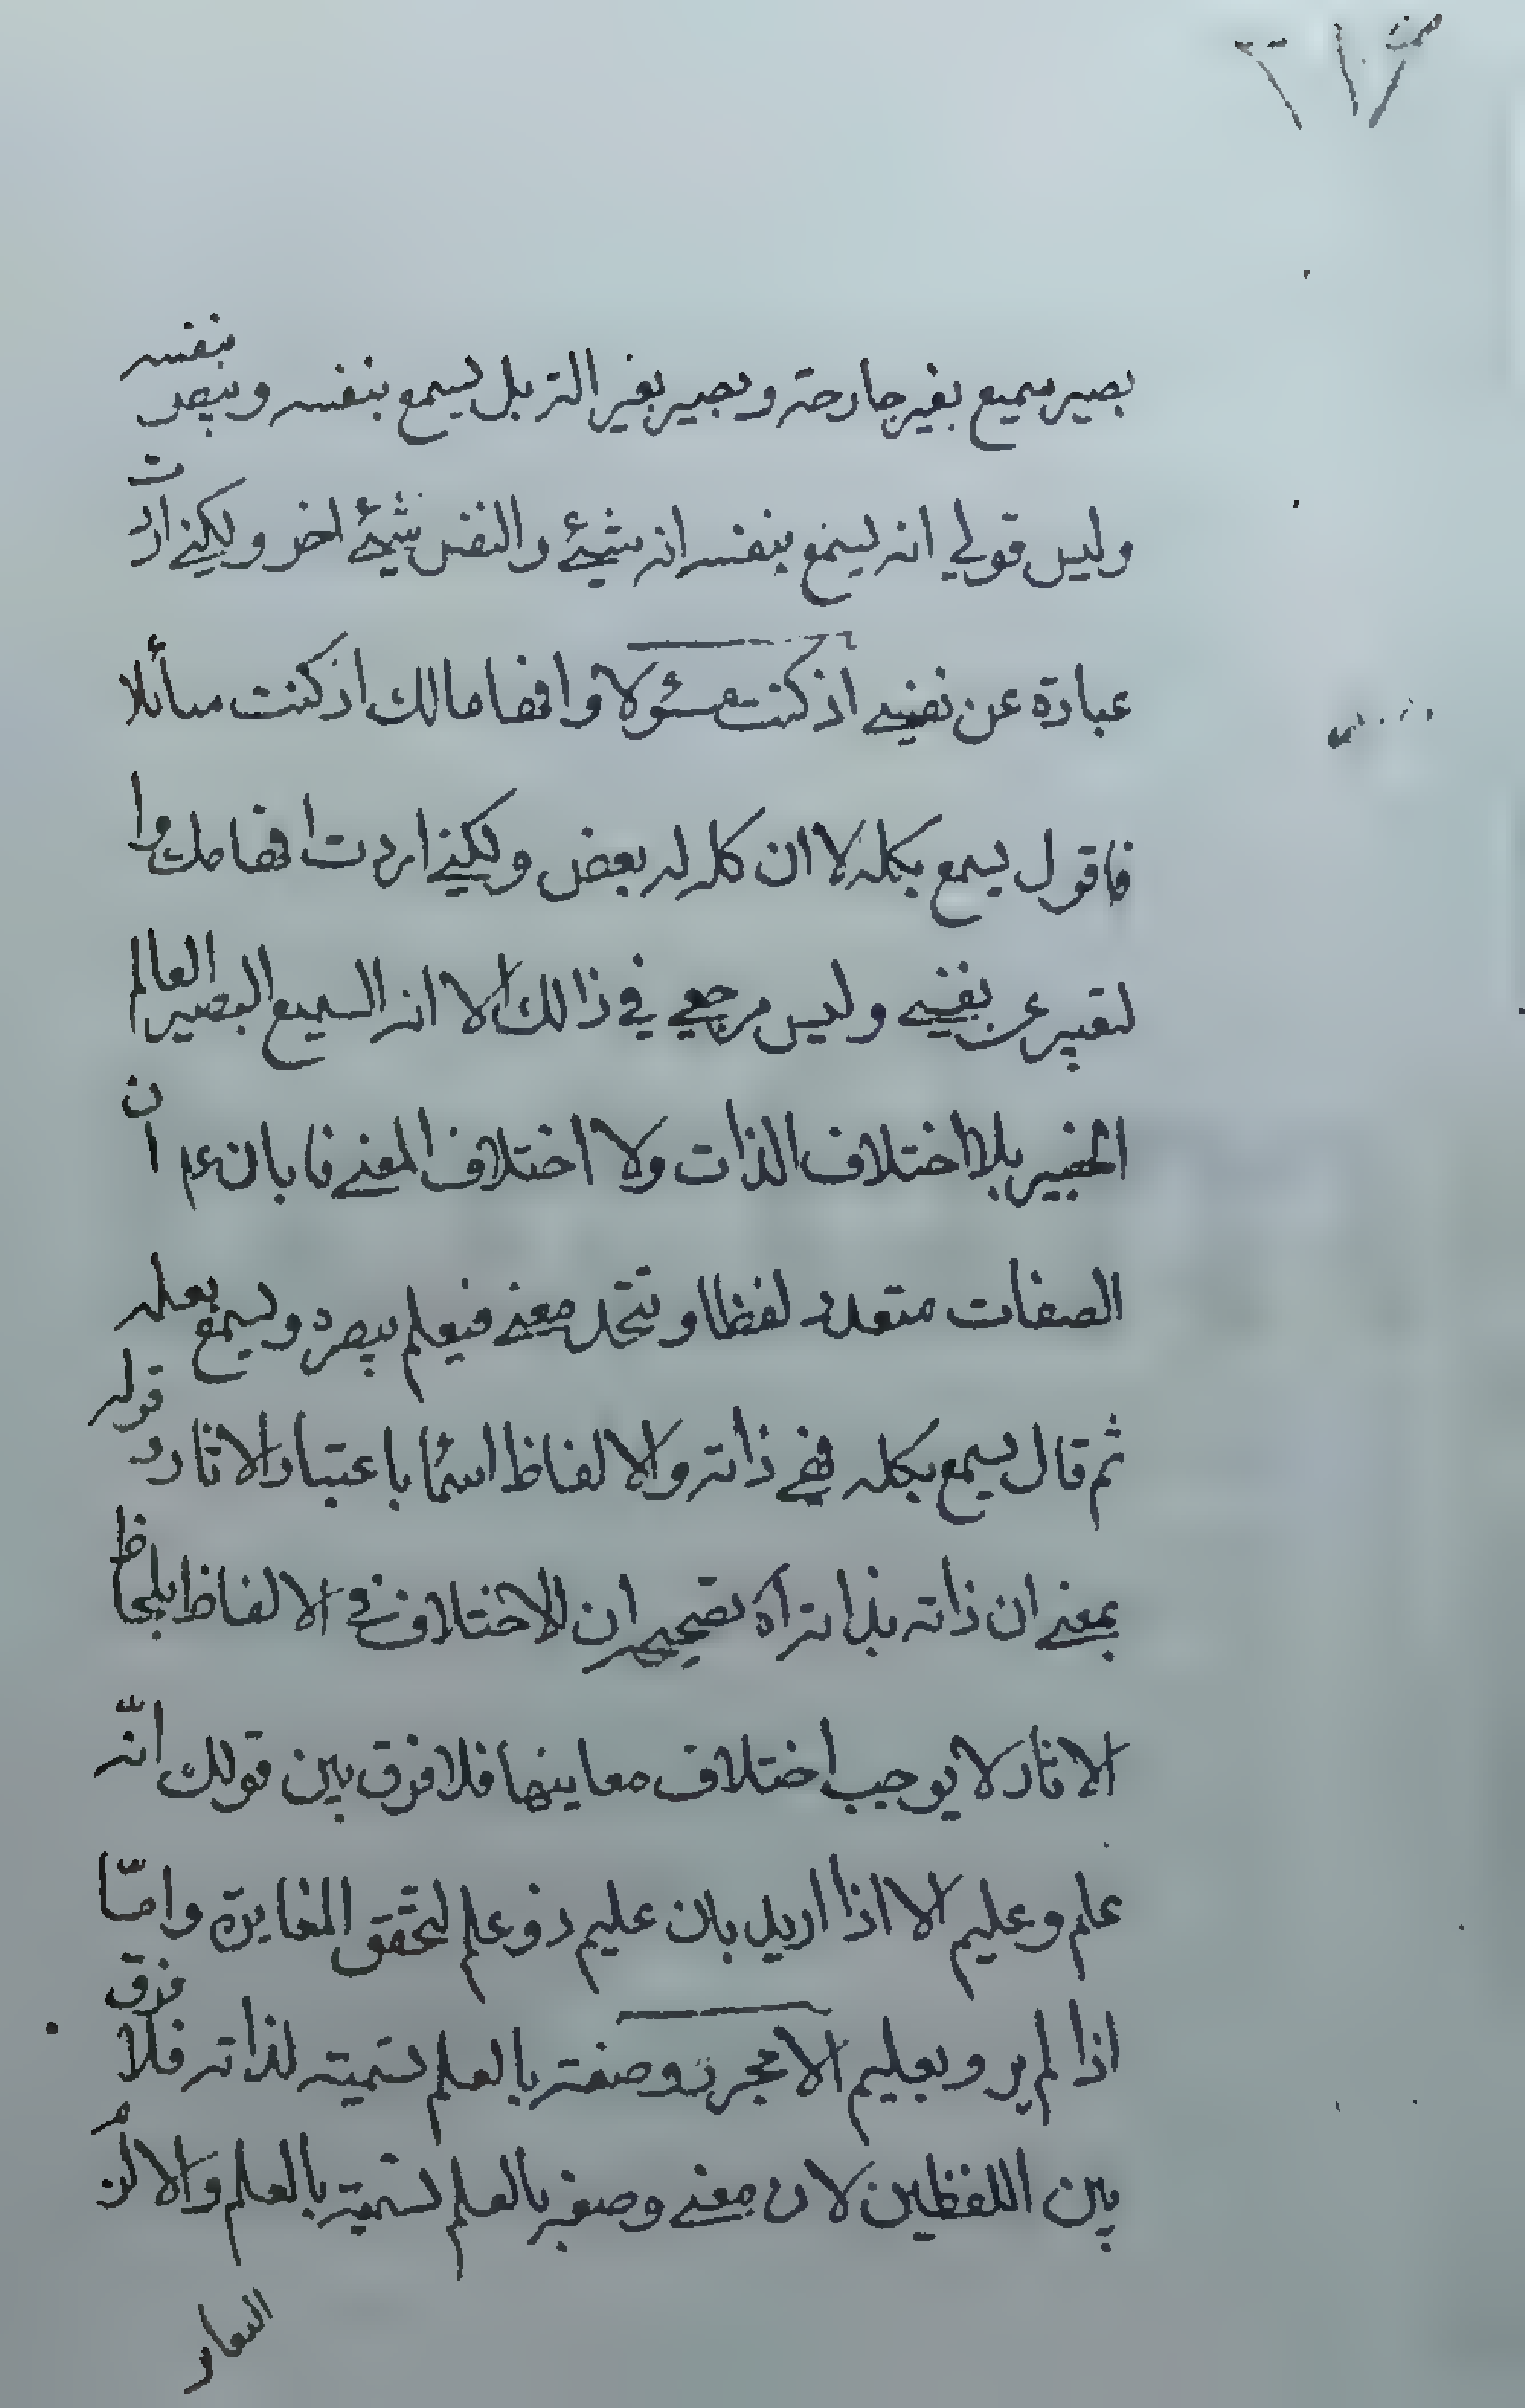 بصير سميع بغير جارحة وبصير بغير الة بل يسمع بنفسه ويبصر بنفسه
وليس قولي انه يسمع بنفسه انه شيئ والنفس شيئ اخر ولكني اردت
عبارة عن نفسي اذ كنت مسئولا وافهاما لك اذ كنت سائلا
فاقول يسمع بكله لا ان كله له بعض ولكني اردت افهامك وا
لتعبير عن نفسي وليس مرجعي في ذالك الا انه السميع البصير العالم
الخبير بلا اختلاف الذات ولا اختلاف المعنى فابان عم ان
الصفات متعدد لفظا و تتحد معنى فيعلم ببصره ويسمع بعلمه
ثم قال يسمع بكله فهي ذاته والالفاظ اسما باعتبار الاثار وقوله
بمعنى ان ذاته بذاته اه تصحيح ان الاختلاف في الالفاظ بلحاظ
الاثار لا يوجب اختلاف معاينها فلا فرق بين قولك انّه
علم وعليم الا اذا اريد بان عليم ذو علم لتحقق المغايرة وامّا
اذا لم يرد بعليم الا مجرد وصفة بالعلم تسمية لذاته فلا فرق
بين اللفظين لان معنى وصفه بالعلم تسمية بالعلم والا لزم